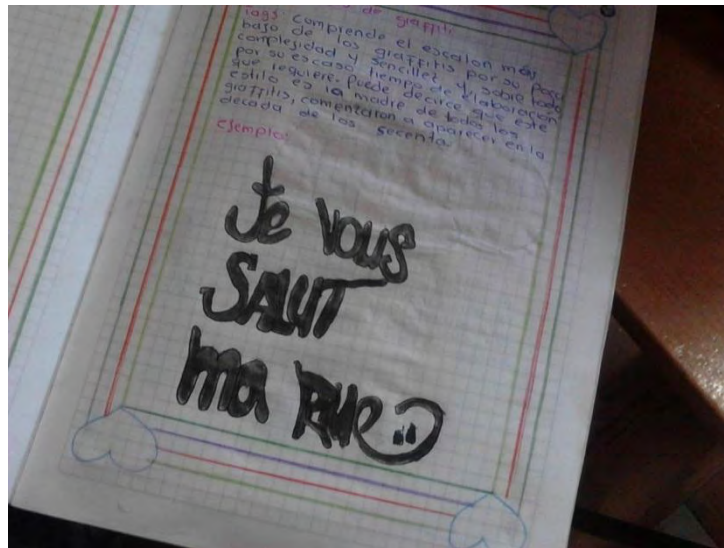 de graffiti
Tags comprende el escalon más
bajo de los graffitis por su poca
complesidad y sencillez y sobre todo
por su escaso tiempo de elaboración
que requiere. Puede decirce que este
estilo es la madre de todos los
graffitis, comentaron a aparecer en la
decada de los secenta
ejemplo:
Je vous
SALUT
ma RUe